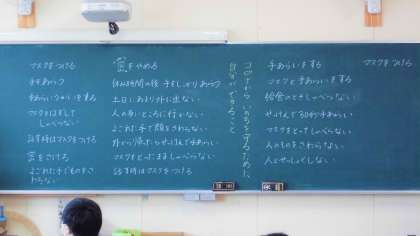 マスクをつける
手をあらう
手あらい うがいをする
マスクをはずして
しゃべらない
話す時はマスクをつける
密をさける
よごれた手でものをさ
わらない
密をやめる
休み時間の後 手をしっかりあらう
土日にあまり外に出ない
人の多いところに行かない
よごれた手で顔をさわらない
外から帰ったらせっけんで手あらい
マスクをとったまましゃべらない
話す時はマスクをつける
コロナから いのちを守るために
自分ができること
手あらいをする
マスクと手あらいをする
給食のときしゃべらない
せっけんで30秒手あらい
マスクをとってしゃべらない
人のものをさわらない
人とせっしょくしない
マスクをつける